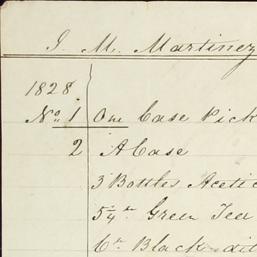 J. M. Martinez
1828
No. 1 One Case Pick
2 A Case
3 Bottles Acetic
Green Tea
6 lb Black dit